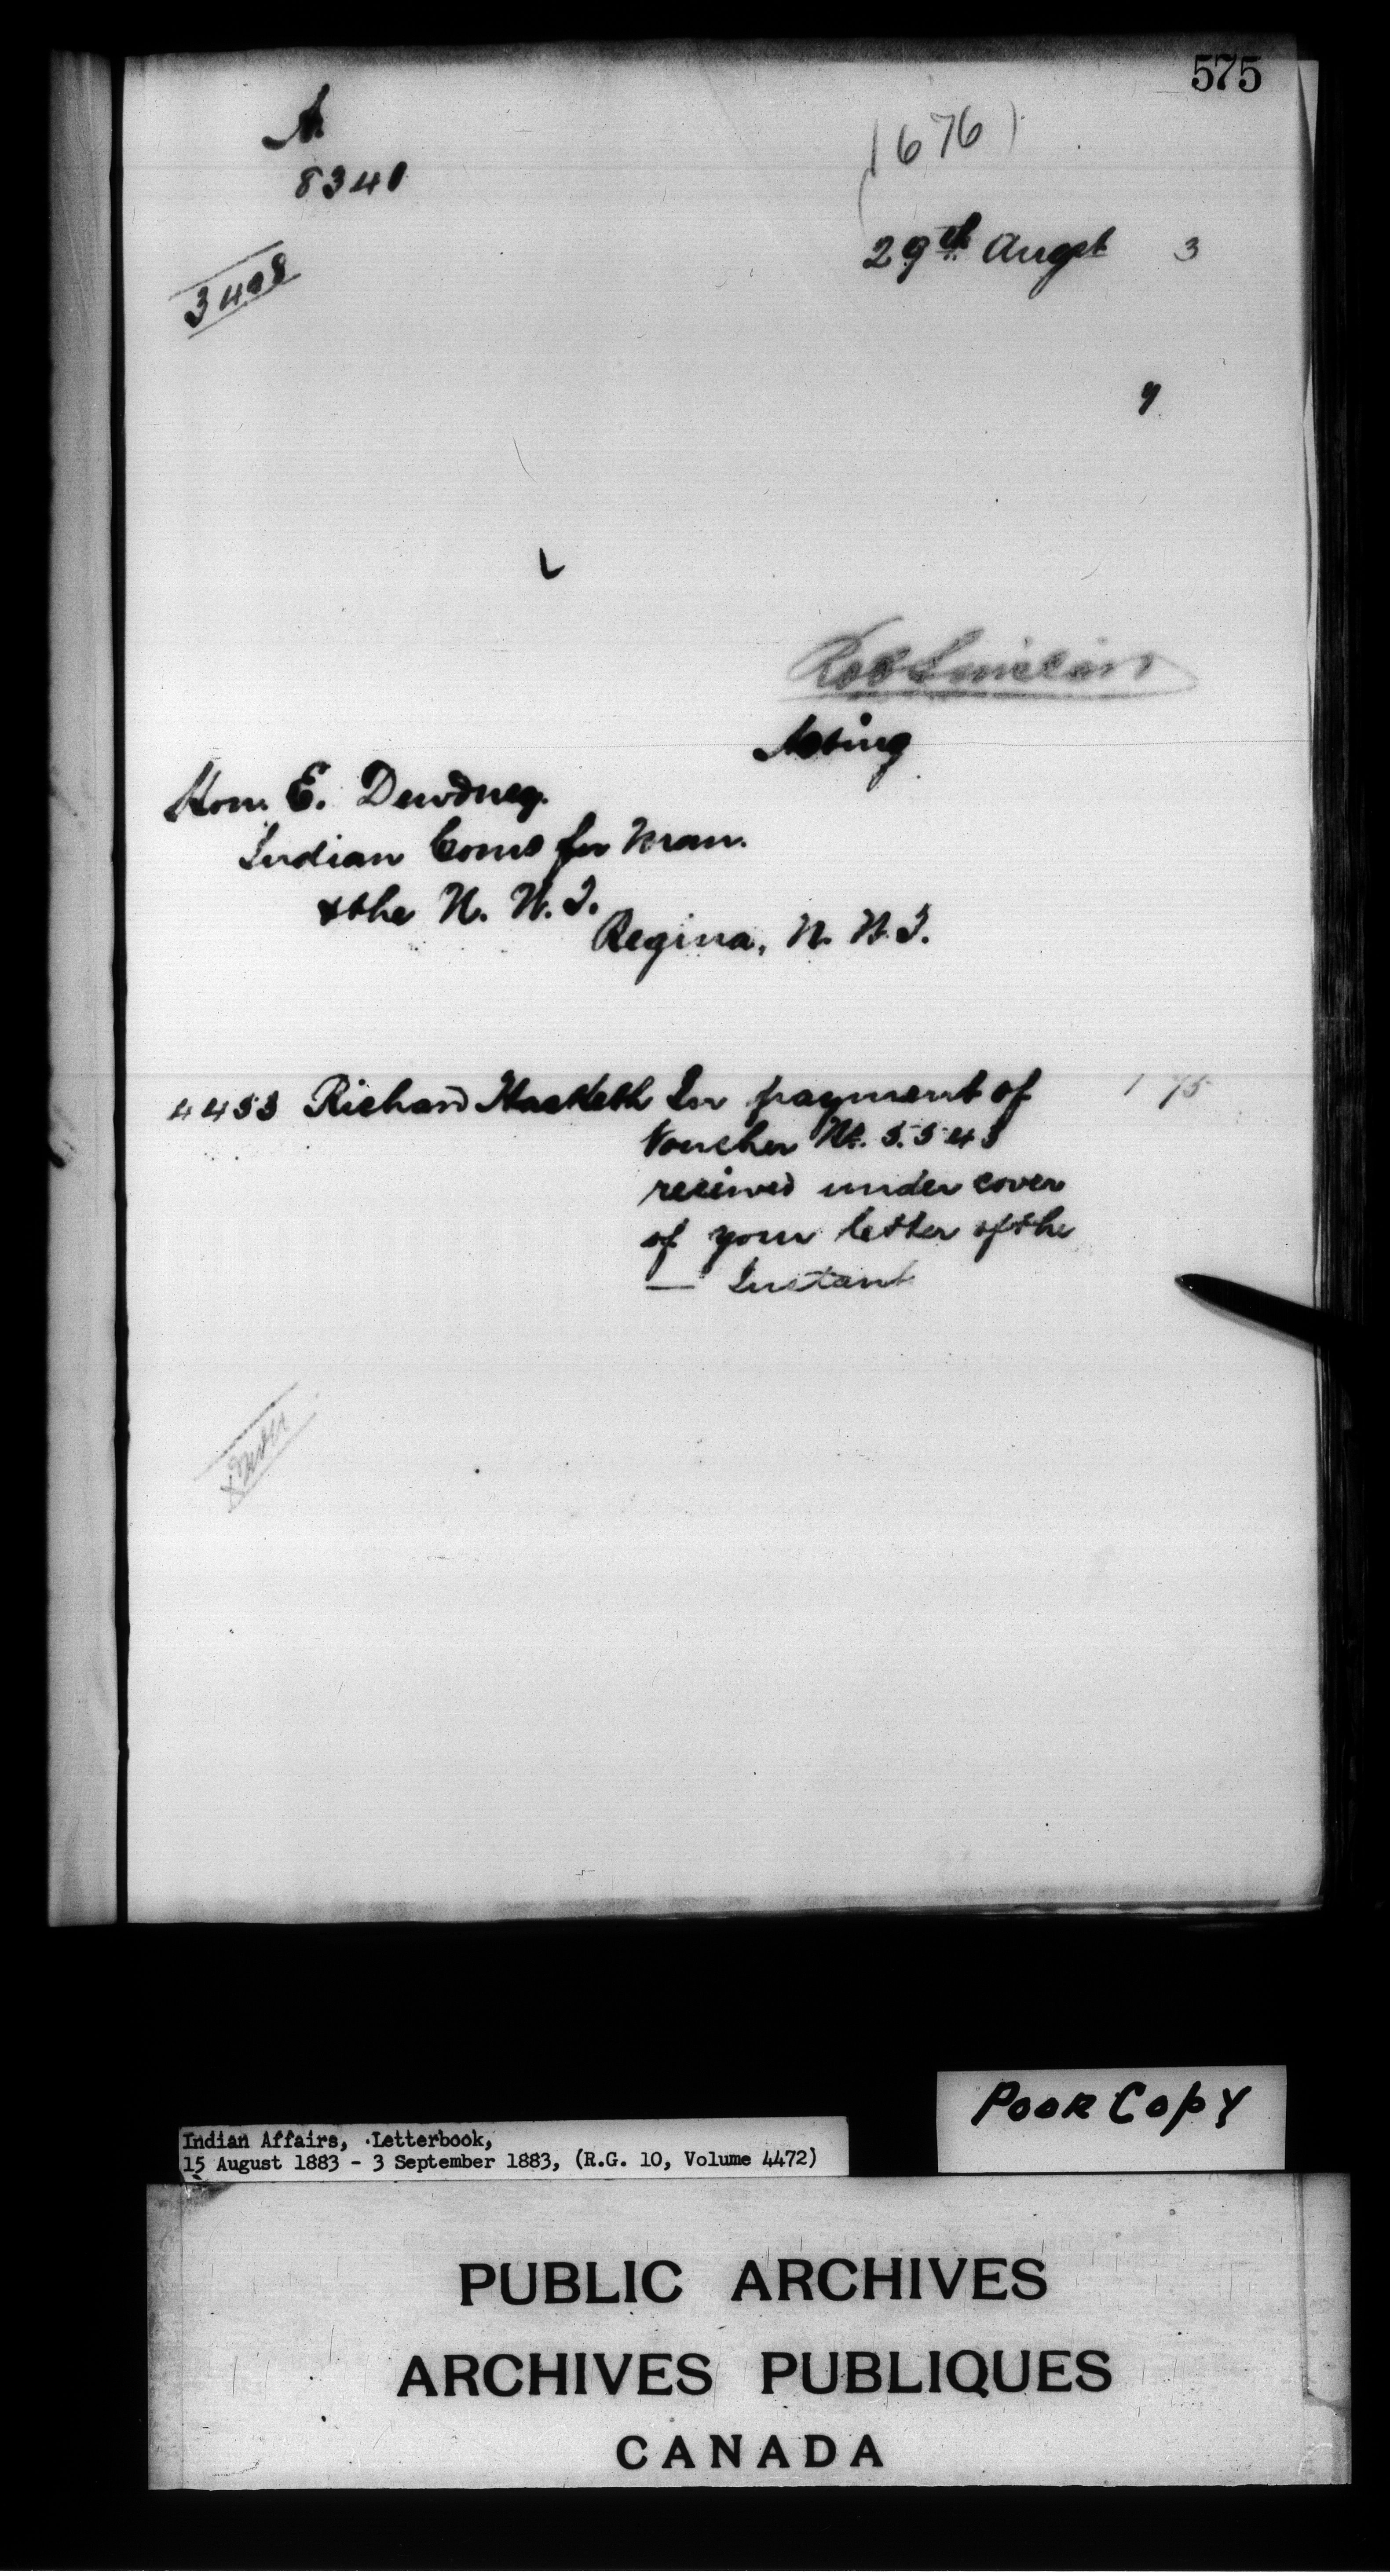 575
A
8340
(676)
29th Augst 3
3408
y
Rob Sinclair
Acting
Hon. E. Dewdney.
Indian Coms for Man.
& the N. W. T.
Regina, N. W. T.
4453 Richard Hasketh In payment of 1 75
Voucher No. 5.543
received under cover
of your letter of the
— Instant
Poor Copy
Indian Affairs, Letterbook,
15 August 1883 - 3 September 1883, (R.G. 10, Volume 4472)
PUBLIC ARCHIVES
ARCHIVES PUBLIQUES
CANADA